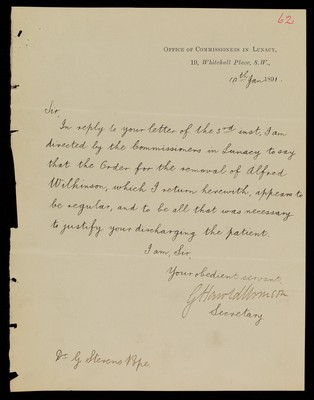 62
OFFICE OF COMMISSIONERS IN LUNACY,
19, Whitehall Place, S.W.,
10th Jan 1891.
Sir,
In reply to your letter of the 3rd inst, I am
directed by the Commissioners in Lunacy to say
that the Order for the removal of Alfred
Wilkinson, which I return herewith, appears to
be regular, and to be all that was necessary
to justify your discharging the patient.
I am, Sir,
Your obedient servant,
G Harold Urmson
Secretary
Dr G. Stevens Pope